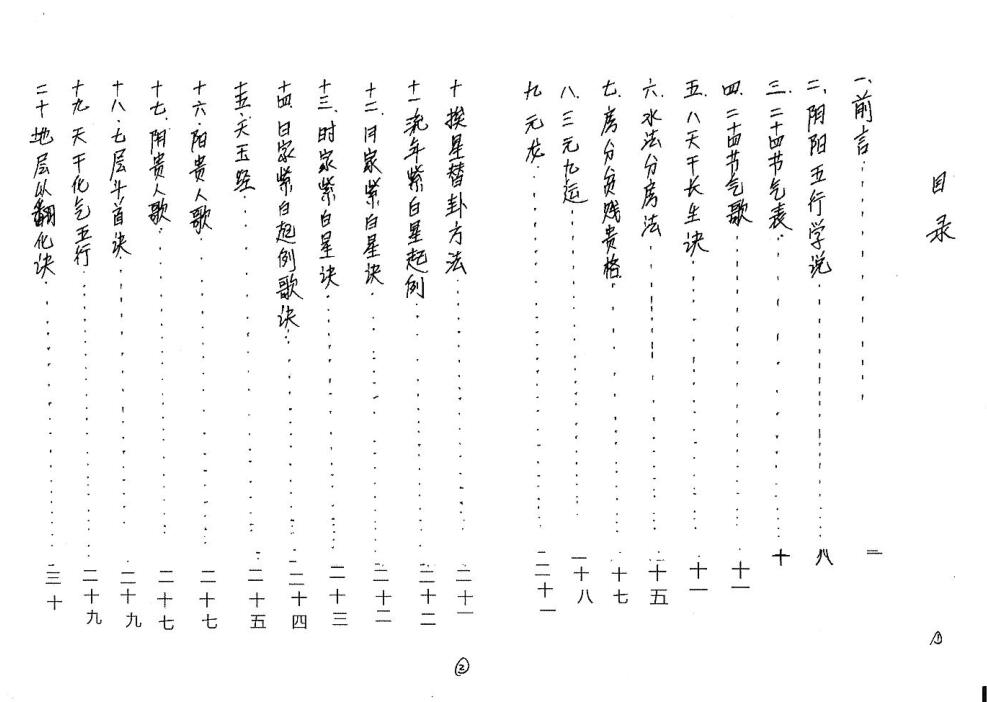 目录
一、前言 一
二、阴阳五行学说 八
三、二十四节气表 十
四、二十四节气歌 十一
五、八天干长生诀 十一
六、水法分房法 十五
七、房分贫贱贵格 十七
八、三元九运 一十八
九、元龙 二十一
①
十、挨星替卦方法 二十一
十一、流年紫白星起例 二十二
十二、月家紫白星诀 二十二
十三、时家紫白星诀 二十三
十四、日家紫白起例歌诀 二十四
十五、天玉经 二十五
十六、阳贵人歌 二十七
十七、阴贵人歌 二十七
十八、七层斗首诀 二十九
十九、天干化气五行 二十九
二十、地层从翻化诀 三十
②